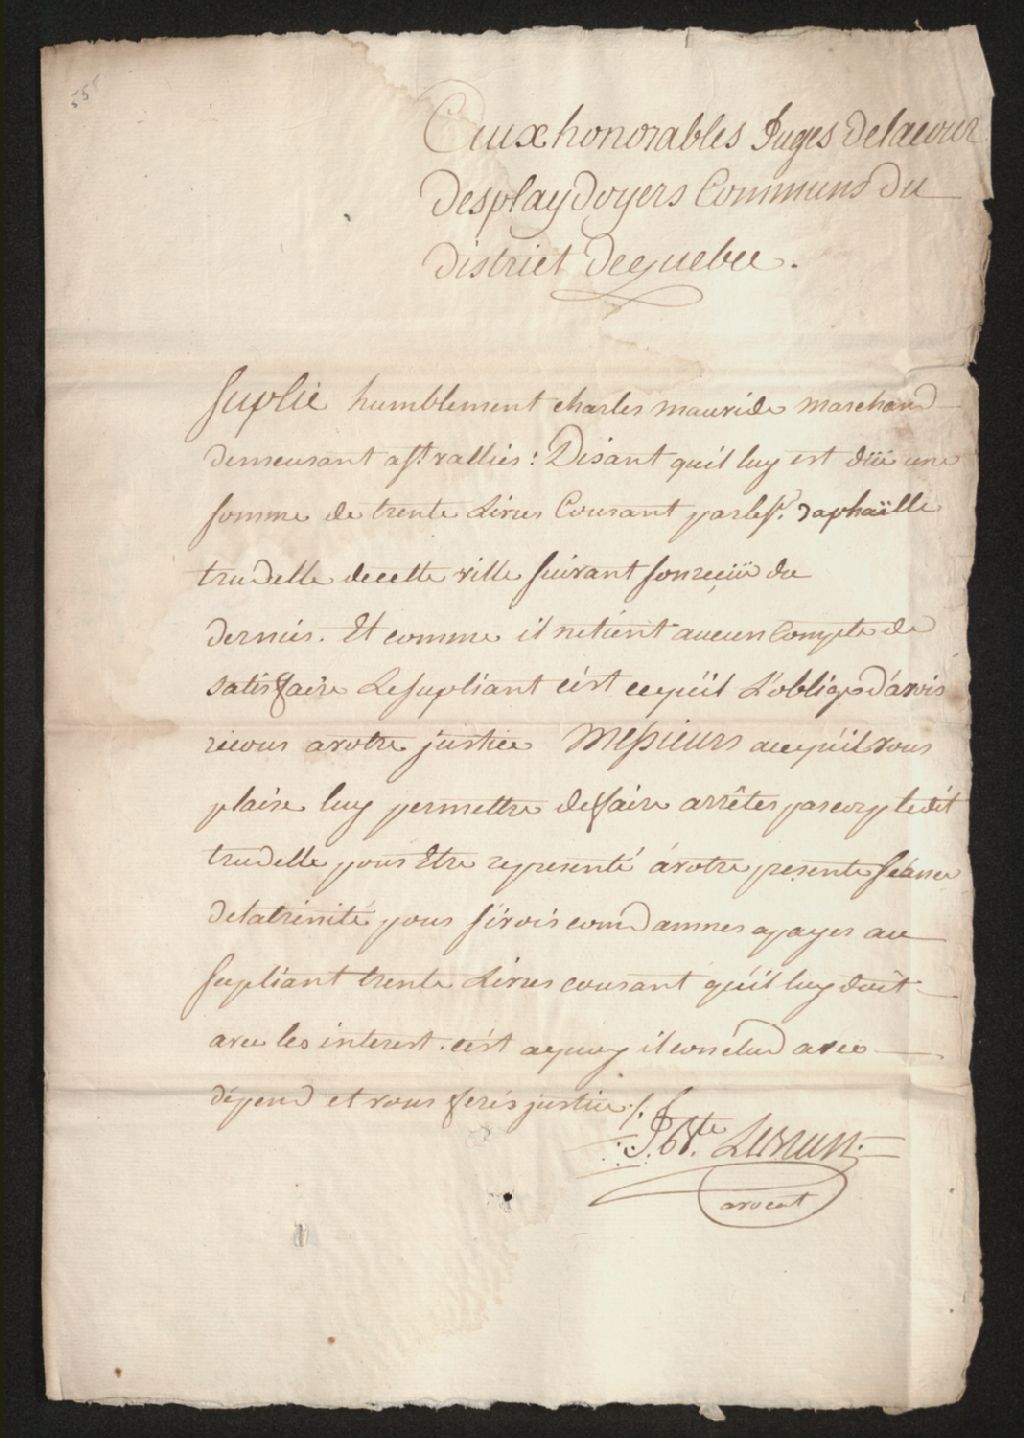 555
Aux honorables Juges delacour
Desplaydoyers Communs du
District dequebec.
Suplie humblement charles mauride marchand
demeurant a st. vallies : Disant quil luy est düe une
somme de trente Livres Courant par le sr. Raphaëlle
trudelle decette ville suivant sonreçüe du
dernier. Et comme il netient aucun Compte de
satisfaire Lesupliant c'est cequil L'oblige d'avoir
recour avotre justice Messieurs acequil vous
plaise luy permettre defaire arrêter parcorp ledit
trudelle pour Etre representé àvotre presente séance
delatrinité pour sevoir condamner apayer au
supliant trente Livres courant qu'il luy doit
avec les interest. c'est aquoy il conclud avec
dépend et vous ferés justice ./.
J. Bte. LeBrun
avocat